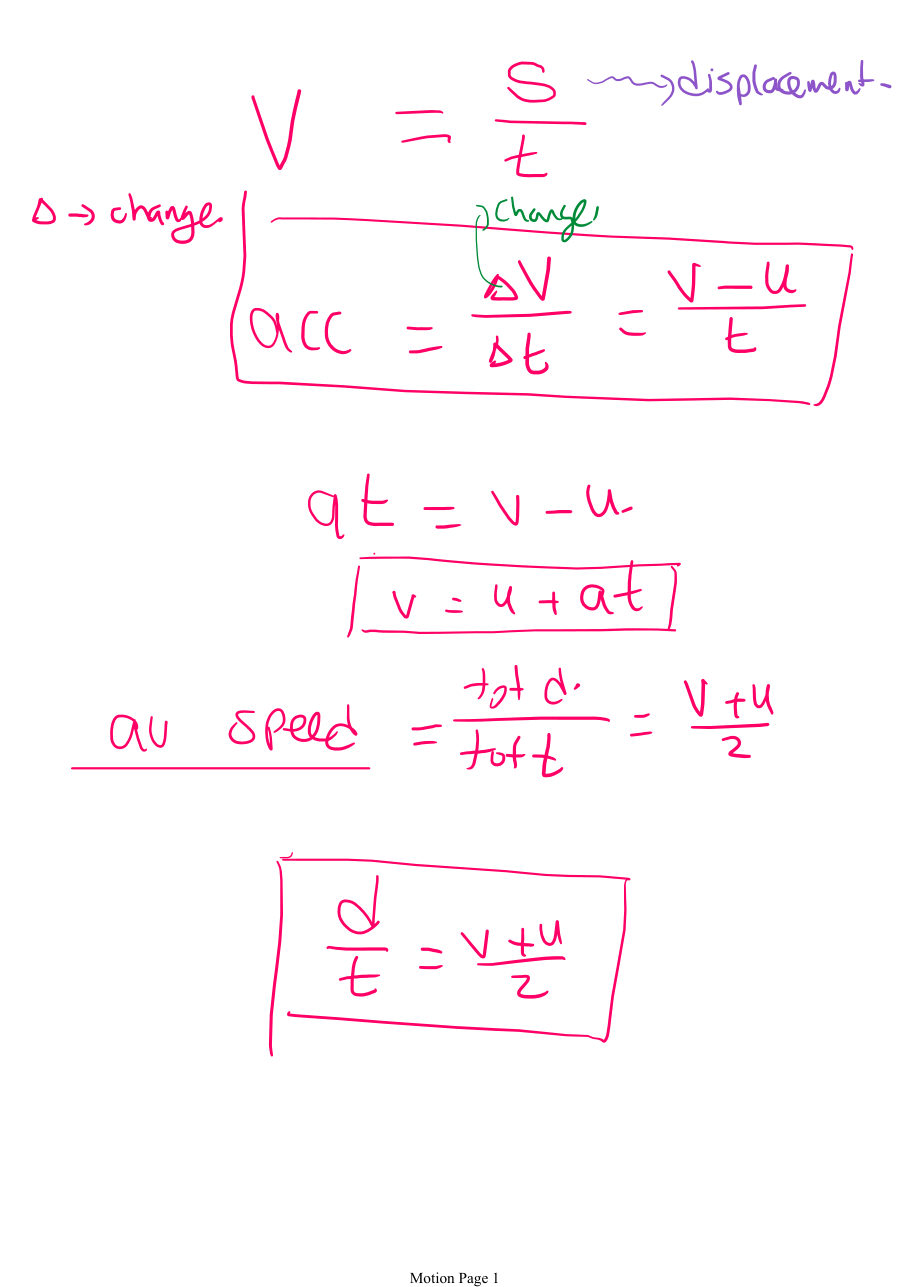 V = s/t → displacement.
Δ → change.
change
acc = ΔV/Δt = V - u/t
at = v - u.
v = u + at
av speed = tot d./tot t = V + u/2
d/t = v + u/2
Motion Page 1